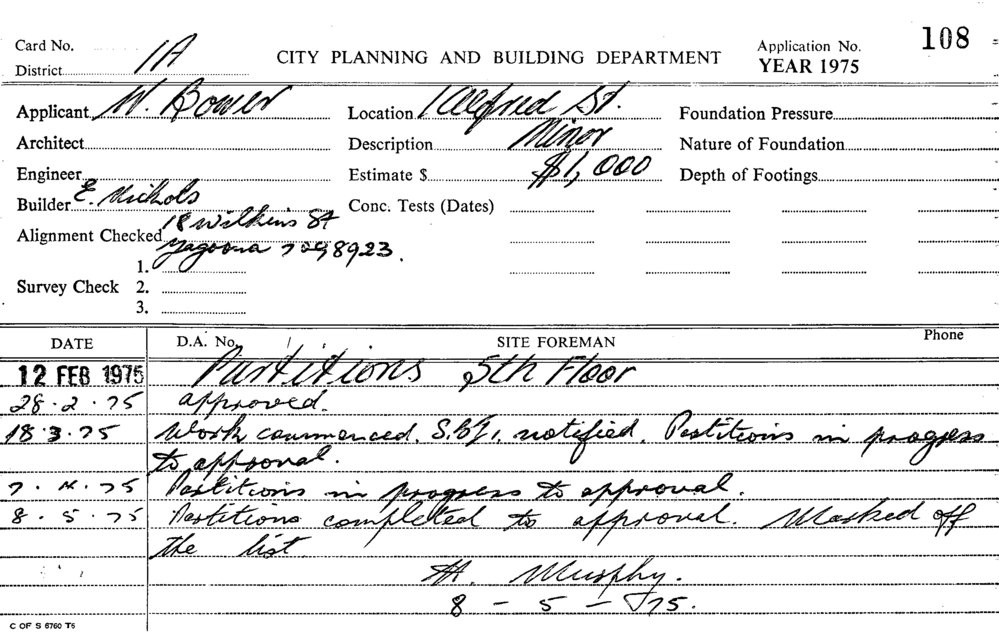 Card No. 1A CITY PLANNING AND BUILDING DEPARTMENT Application No. 108
District YEAR 1975
Applicant W. Bower Location 1 Alfred St. Foundation Pressure
Architect Description Minor Nature of Foundation
Engineer Estimate $ $1,000 Depth of Footings
Builder E. Nichols Conc. Tests (Dates)
18 Wilkins St
Alignment Checked
Yagoona 7098923.
1.
Survey Check 2.
3.
DATE D.A. No. SITE FOREMAN Phone
12 FEB 1975 Partitions 5th Floor
28.2.75 approved.
18.3.75 Work commenced. S.B.I. notified. Partitions in progress
to approval.
7.4.75 Partitions in progress to approval.
8.5.75 Partitions completed to approval. Marked off
the list.
Murphy.
8-5-75.
C OF S 6760 T6